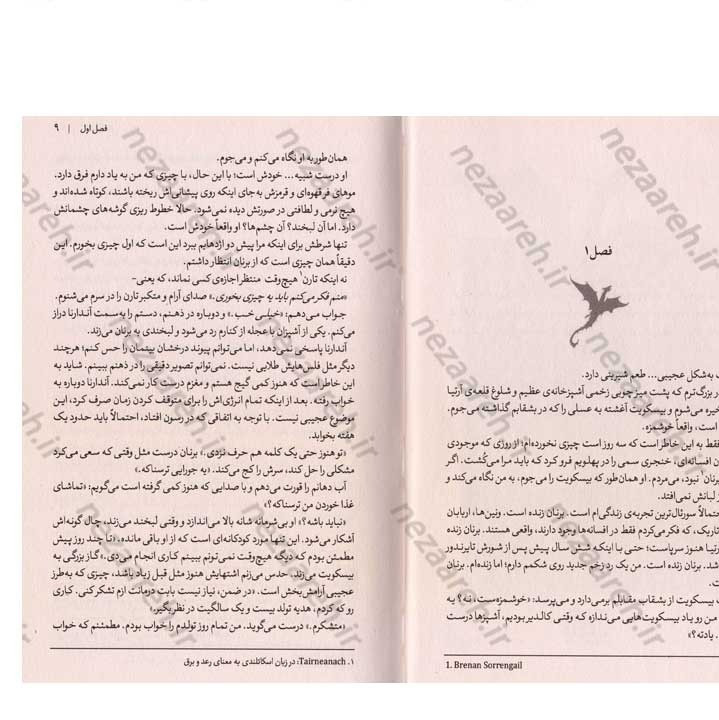 فصل ۱
به‌شکل عجیبی… طعم شیرینی دارد.
بزرگ‌ترم که پشت میز چوبی زخمی آشپزخانه‌ی عظیم و شلوغ قلعه‌ی آرتیا
خیره می‌شوم و بیسکویت آغشته به عسلی را که در بشقابم گذاشته می‌جوم.
است، واقعاً خوشمزه.
فقط به این خاطر است که سه روز است چیزی نخورده‌ام؛ از روزی که موجودی
افسانه‌ای، خنجری سمی را در پهلویم فرو کرد که باید مرا می‌کُشت. اگر
برنان۱ نبود، می‌مردم. او همان‌طور که بیسکویت را می‌جوم، به من نگاه می‌کند و
لبانش نمی‌افتد.
احتمالاً سورئال‌ترین تجربه‌ی زندگی‌ام است. برنان زنده است. ونین‌ها، اربابان
تاریک، که فکر می‌کردم فقط در افسانه‌ها وجود دارند، واقعی هستند. برنان زنده
هنوز سرپاست؛ حتی با اینکه شش سال پیش پس از شورش تایرندور
شد. برنان زنده است. من یک رد زخم جدید روی شکمم دارم؛ اما زنده‌ام. برنان
زنده است.
بیسکویت از بشقاب مقابلم برمی‌دارد و می‌پرسد: «خوشمزه‌ست، نه؟ یه
من رو یاد بیسکویت‌هایی می‌ندازه که وقتی کالدیر بودیم، آشپزها درست
یادته؟»
1. Brenan Sorrengail
فصل اول | ۹
همان‌طور به او نگاه می‌کنم و می‌جوم.
او درست شبیه… خودش است؛ با این حال، با چیزی که من به یاد دارم فرق دارد.
موهای فر قهوه‌ای و قرمزش به‌جای اینکه روی پیشانی‌اش ریخته باشند، کوتاه شده‌اند و
هیچ نرمی و لطافتی در صورتش دیده نمی‌شود. حالا خطوط ریزی گوشه‌های چشمانش
دارد. اما آن لبخند؟ آن چشم‌ها؟ او واقعاً خودش است.
تنها شرطش برای اینکه مرا پیش دو اژدهایم ببرد این است که اول چیزی بخورم. این
دقیقاً همان چیزی است که از برنان انتظار داشتم.
نه اینکه تارن۱ هیچ‌وقت منتظر اجازه‌ی کسی نماند، که یعنی-
«منم فکر می‌کنم باید یه چیزی بخوری.» صدای آرام و متکبر تارن را در سرم می‌شنوم.
جواب می‌دهم: «خیلی خب.» و دوباره در ذهنم، دستم را به‌سمت آندارنا دراز
می‌کنم. یکی از آشپزان با عجله از کنارم رد می‌شود و لبخندی به برنان می‌زند.
آندارنا پاسخی نمی‌دهد، اما می‌توانم پیوند درخشان بینمان را حس کنم؛ هرچند
دیگر مثل فلس‌هایش طلایی نیست. نمی‌توانم تصویر دقیقی را در ذهنم ببینم. شاید به
این خاطر است که هنوز کمی گیج هستم و مغزم درست کار نمی‌کند. آندارنا دوباره به
خواب رفته. بعد از اینکه تمام انرژی‌اش را برای متوقف کردن زمان صرف کرد، این
موضوع عجیبی نیست. با توجه به اتفاقی که در رسون افتاد، احتمالاً باید حدود یک
هفته بخوابد.
«تو هنوز حتی یک کلمه هم حرف نزدی.» برنان درست مثل وقتی که سعی می‌کرد
مشکلی را حل کند، سرش را کج می‌کند. «یه جورایی ترسناکه.»
آب دهانم را قورت می‌دهم و با صدایی که هنوز کمی گرفته است می‌گویم: «تماشای
غذا خوردن من ترسناکه؟»
«نباید باشه؟» او بی‌شرمانه شانه بالا می‌اندازد و وقتی لبخند می‌زند، چال گونه‌اش
آشکار می‌شود. این تنها مورد کودکانه‌ای است که از او باقی مانده. «تا چند روز پیش
مطمئن بودم که دیگه هیچ‌وقت نمی‌تونم ببینم کاری انجام می‌دی.» گاز بزرگی به
بیسکویت می‌زند. حدس می‌زنم اشتهایش هنوز مثل قبل زیاد باشد، چیزی که به‌طرز
عجیبی آرامش‌بخش است. «در ضمن، نیاز نیست بابت درمانت ازم تشکر کنی. کاری
رو که کردم، هدیه تولد بیست و یک سالگیت در نظر بگیر.»
«متشکرم.» درست می‌گوید. من تمام روز تولدم را خواب بودم. مطمئنم که خواب
۱. Tairneanach: در زبان اسکاتلندی به معنای رعد و برق
nezaareh.ir
nezaareh.ir
nezaareh.ir
nezaareh.ir
nezaareh.ir
nezaareh.ir
nezaareh.ir
nezaareh.ir